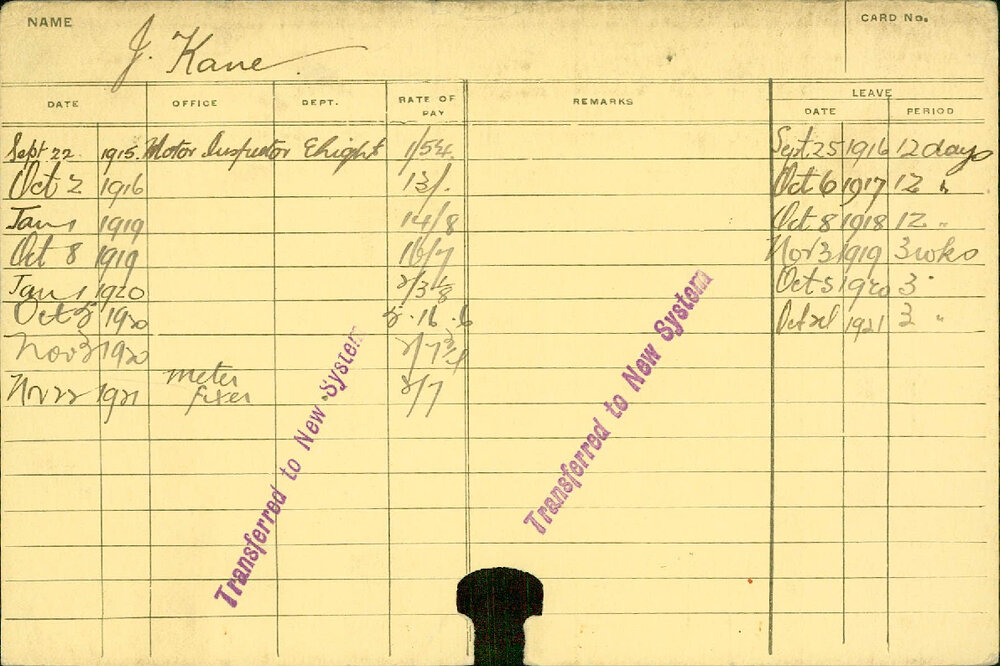 NAME J. Kane CARD No.
DATE OFFICE DEPT. RATE OF PAY REMARKS LEAVE
DATE PERIOD
Sept 22 1915 Motor Inspector Elight Sept. 25 1916 12 days
Oct 2 1916 13/. Oct 6 1917 12 "
Jan 1 1919 14/8 Oct 8 1918 12 "
Oct 8 1919 16/7 Nov 3 1919 3 wks
Jan 1 1920 Oct 5 1920 3 "
Oct 5 1920 5.16.6 1921 3 "
Nov 3 1920
Nov 22 1921 meter fixer 2/7
Transferred to New System
Transferred to New System